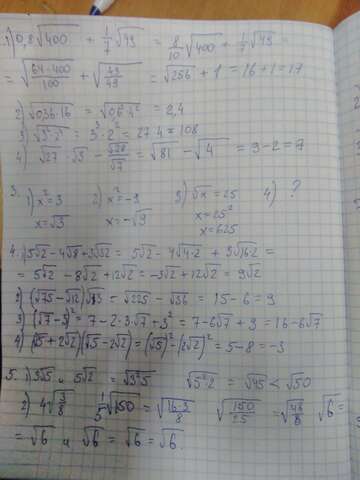 1) 0,8√400 + 1/7 √49 = 8/10 √400 + 1/7 √49 =
= √(64·400/100) + √(49/49) = √256 + 1 = 16 + 1 = 17
2) √0,36·16 = √0,6²·4² = 2,4
3) √3⁶·2⁴ = 3³·2² = 27·4 = 108
4) √27 · √3 − √28/√7 = √81 − √4 = 9 − 2 = 7
3. 1) x² = 3 2) x² = −9 3) √x = 25 4) ?
x = √3 x = −√9 x = 25²
x = 625
4. 1) 5√2 − 4√8 + 3√32 = 5√2 − 4√4·2 + 3√16·2 =
= 5√2 − 8√2 + 12√2 = −3√2 + 12√2 = 9√2
2) (√75 − √12)√3 = √225 − √36 = 15 − 6 = 9
3) (√7 − 3)² = 7 − 2·3·√7 + 3² = 7 − 6√7 + 9 = 16 − 6√7
4) (√5 + 2√2)(√5 − 2√2) = (√5)² − (2√2)² = 5 − 8 = −3
5. 1) 3√5 и 5√2 = √3²·5 √5²·2 = √45 < √50
2) 4√(3/8) 1/5 √150 = √(16·3/8) √(150/25) = √(48/8) √6 =
= √6 и √6 = √6 = √6.